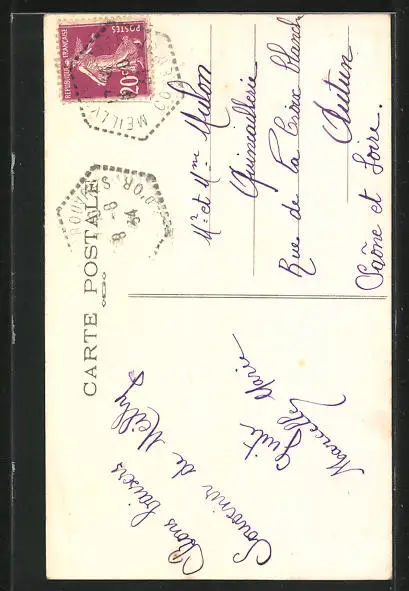 CARTE POSTALE
REPUBLIQUE FRANÇAISE
POSTES
20c
MEILLY
ROUVRES
D'OR
8 - 8
34
Bons baisers
Souvenir de Meilly
Guite Marie
Marcelle
Mr et Mme Mulon
Quincaillerie
Rue de la Croix Blanche
Autun
Saône et Loire.